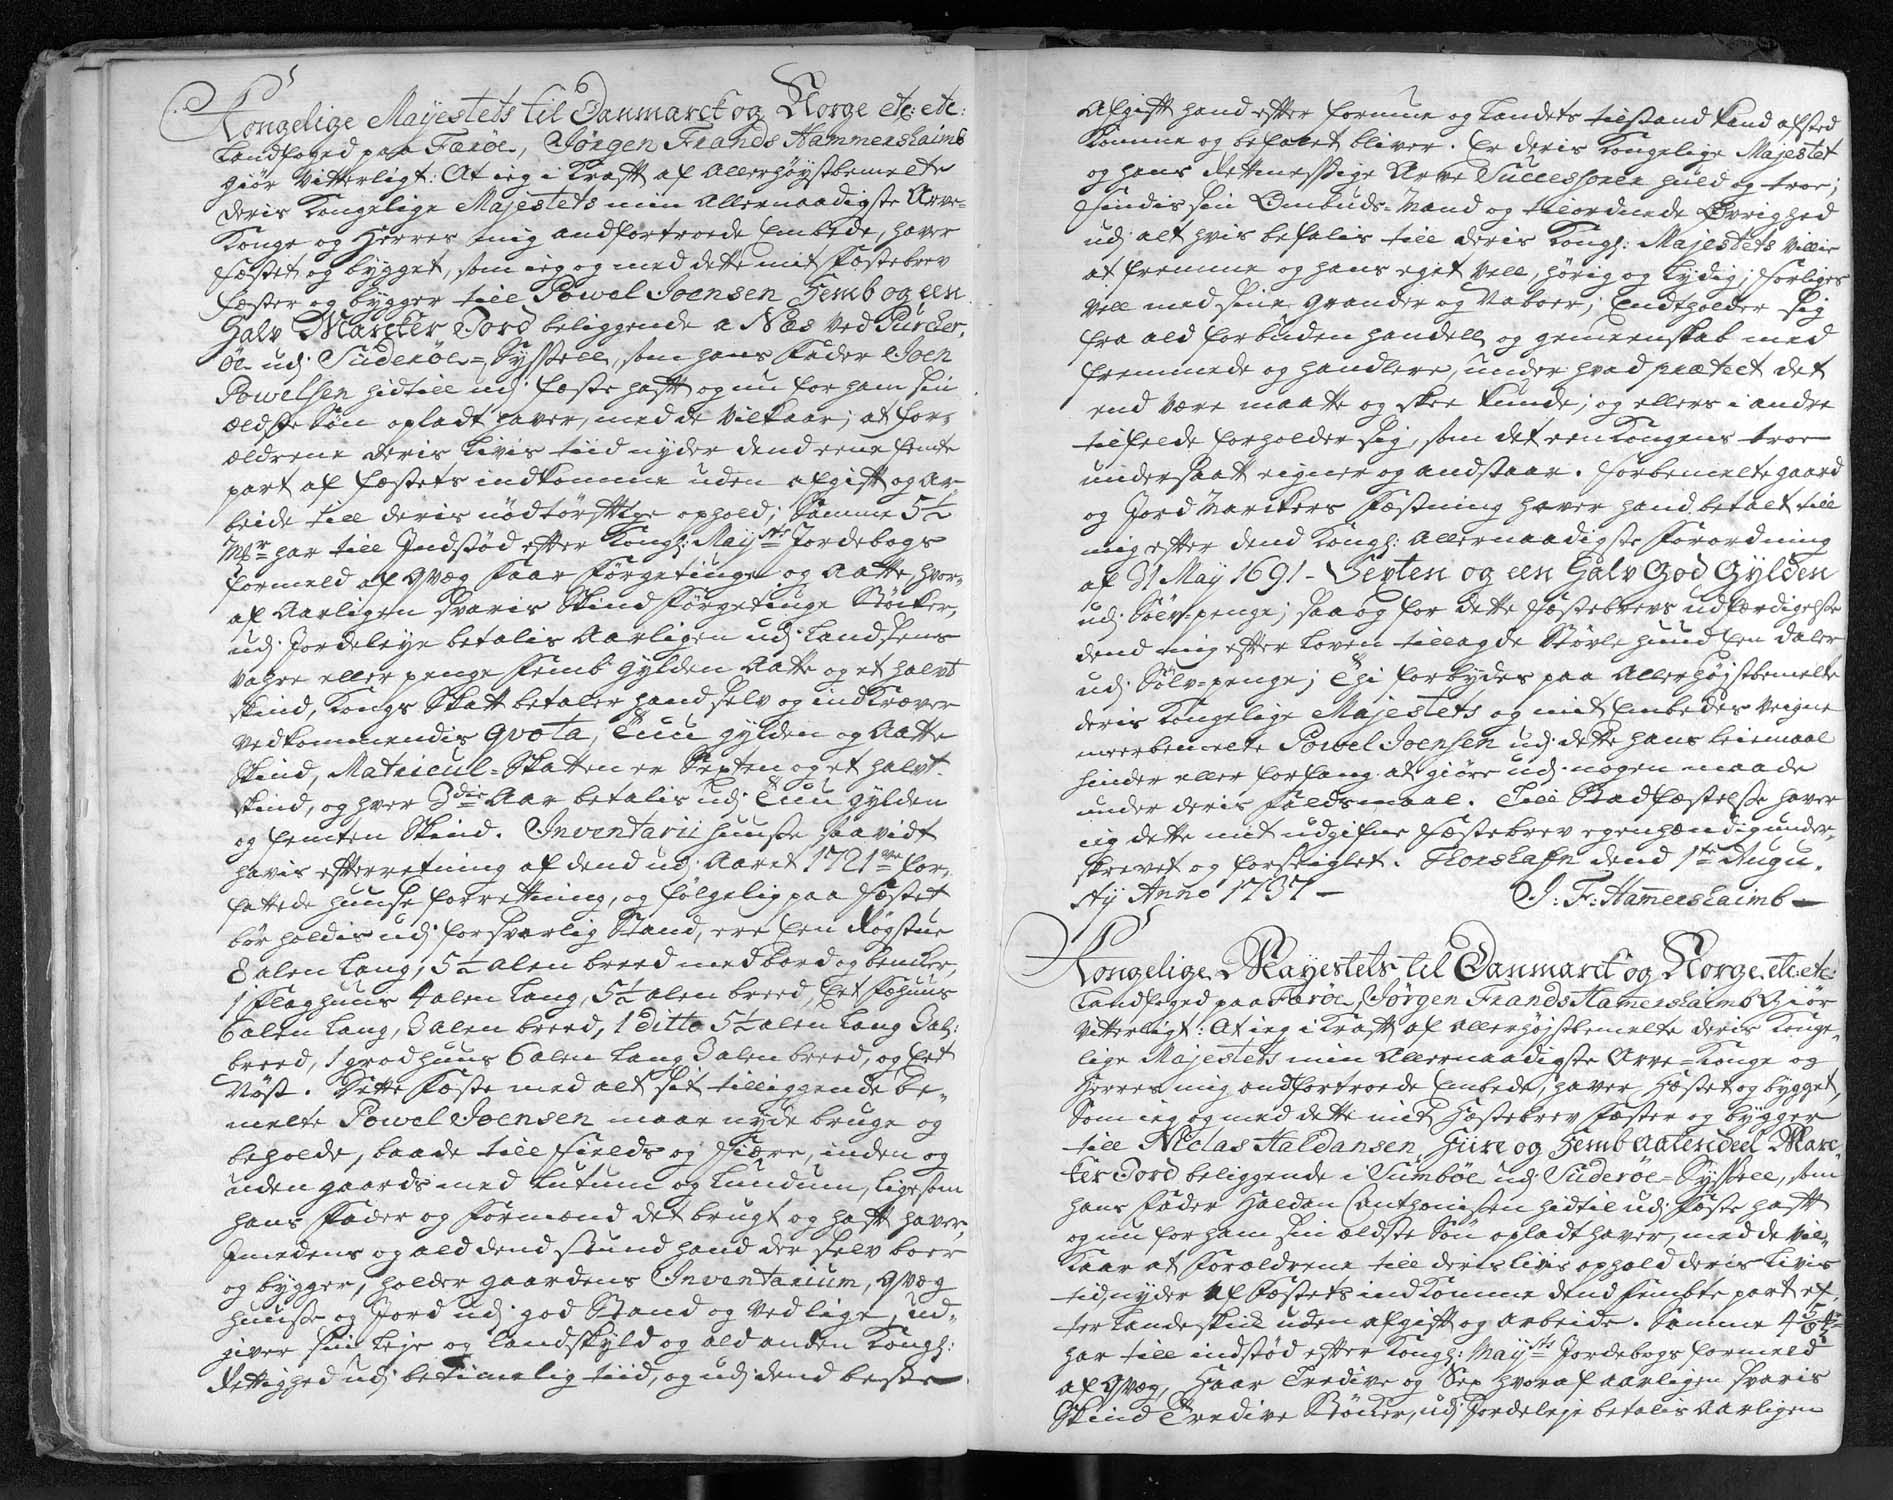 Kongelige Mayestets til Danmarck og Norge etc: etc:
Landfoged paa Færöe, Jörgen Frands Hammershaimb
giör vitterligt: At ieg i Krafft af Allerhöystbemelte
deris Kongelige Majestets min Allernaadigste Arve-
Konge og Herres mig andfortroede Embede, haver
fæstet og bÿgget, som ieg og med dette mit Fæstebrev
fæster og bygger till Powel Joensen Femb og een
Halv Marcker Jord beliggende a Næs ved Purcker-
öe udj Suderöe-Sÿssell, som hans Fader Joen
Powelsen hidtill udj fæste hafft og nu for ham sin
ældste Sön opladt haver, med de vilkaar; at for-
ældrene deris Livis tiid nyder dend eene femte
part af Fæstets indkomme uden afgifft og ar-
beide till deris nödtörfftige ophold; Samme 5½
Mkr har till Indstöd efter Kongl: Mayts Jordebogs
formeld af Qvæg Faar Förgetinge og Aatte, hvor-
af Aarligen svaris Skind Förgetinge Stöcker,
udj Jordeleye betalis Aarligen udj Landsens
vahre eller penge Femb Gylden Aatte og et halvt
skind, Kongs Skatt betaler hand selv og indkræver
vedkommendis qvota, Tuu gylden og Aatte
Skind, Matricul-Skatten er Sexten og et halvt
skind, og hver 3die Aar betalis udj Tuu gylden
og femten Skind. Inventarii huusse saavidt
havis efterretning af dend udj Aaret 1721ve for-
fattede huuse forrettning, og fölgelig paa Fæstet
bör holdis udj forsvarlig Stand, ere Een Rögstue
8 alen lang, 5½ alen breed med bord og bencker,
1 Flaghuus 4 alen lang, 5½ alen breed, Et Fæhuus
6 alen lang, 3 alen breed, 1 ditto 5½ alen lang 3 al:
breed, 1 grodhuus 6 alen lang 3 alen breed, og Eet
Nöst. Dette Fæste med alt sit tilliggende be-
melte Powel Joensen maae nyde bruge og
beholde, baade till Fields og Fiære, inden og
uden gaards med lutum og lundum, ligesom
hans Fader og Formænd det brugt og hafft haver,
Imedens og ald dend stund hand der selv boer
og bygger, holder gaardens Inventarium, qvæg
huusse og Jord udj god Stand og ved lige, ud-
giver sin Leje og landskyld og ald anden Kongl:
Rettighed udj betimelig tiid, og udj dend beste
Afgifft hand efter formue og Landets tilstand kand afsted
komme og befalet bliver. Er deris Kongelige Majestet
og hans Rettmessige Arve Successorer huld og troe;
findis sin Ombuds-Mand og tilordnede Øvrighed
udj alt hvis befalis till deris Kongl: Majestets villie
at fremme og hans eget vell, hörig og lydig; forliges
vell med sine Grander og Naboer; Endtholder sig
fra ald forbuden handell og gemeenskab med
fremmede og handlere, under hvad prætect det
end være maatte og skee kunde; og ellers i andre
tilfelde forholder sig, som det een Kongens troe
undersaatt eigner og andstaar. Forbemelte gaard
og Jord Marckers Fæstning haver hand betalt till
mig efter dend Kongl: Allernaadigste Forordning
af 21 May 1691 - Sexten og een Halv God Gylden
udj Sölv-penge; saa og for dette Fæstebrevs udfærdigelse
dend mig efter Loven tillagde Stövle huud Een daler
udj Sölv-penge; Thi forbydes paa Allerhöjstbemelte
deris Kongelige Majestets og mit Embedes veigne
meerbemelte Powel Joensen udj dette hans leiemaal
hinder eller forfang at giöre udj nogen maade
under deris faldsmaal. Till Stadfæstelse haver
ieg dette mit udgifne Fæstebrev egenhændig under-
skrevet og forseiglet. Thorshafn dend 1te Augu-
stij Anno 1737 —
J: F: Hamershaimb —
Kongelige Mayestets til Danmarck og Norge etc: etc:
Landfoged paa Færöe, Jörgen Frands Hamershaimb Giör
vitterligt: At ieg i Krafft af Allerhöjstbemelte deris Konge-
lige Majestets min Allernaadigste Arve-Konge og
Herres mig andfortroede Embede, haver Fæstet og bygget,
Som ieg og med dette mit Fæstebrev Fæster og bygger
till Niclas Haldansen, Fiire og Femb Aatendeel Marc-
ker Jord beliggende i Sumböe udj Suderöe-Sÿssell, som
hans Fader Haldan Anthonissen hidtil udj Fæste hafft
og nu for ham sin ældste Sön opladt haver, med de vil-
kaar at Forældrene till deris livis ophold deris Livis
tid, nyder af Fæstets indkomme dend Fembte part ef-
ter Landskick uden afgifft og arbeide. Samme 4⅝ Mkr
har till indstöd efter Kongl: Mayts Jordebogs formeld
af Qvæg, Faar Tredive og Sex hvoraf aarligen svaris
Skind Tredive Stöcker, udj Jordeleje betalis Aarligen